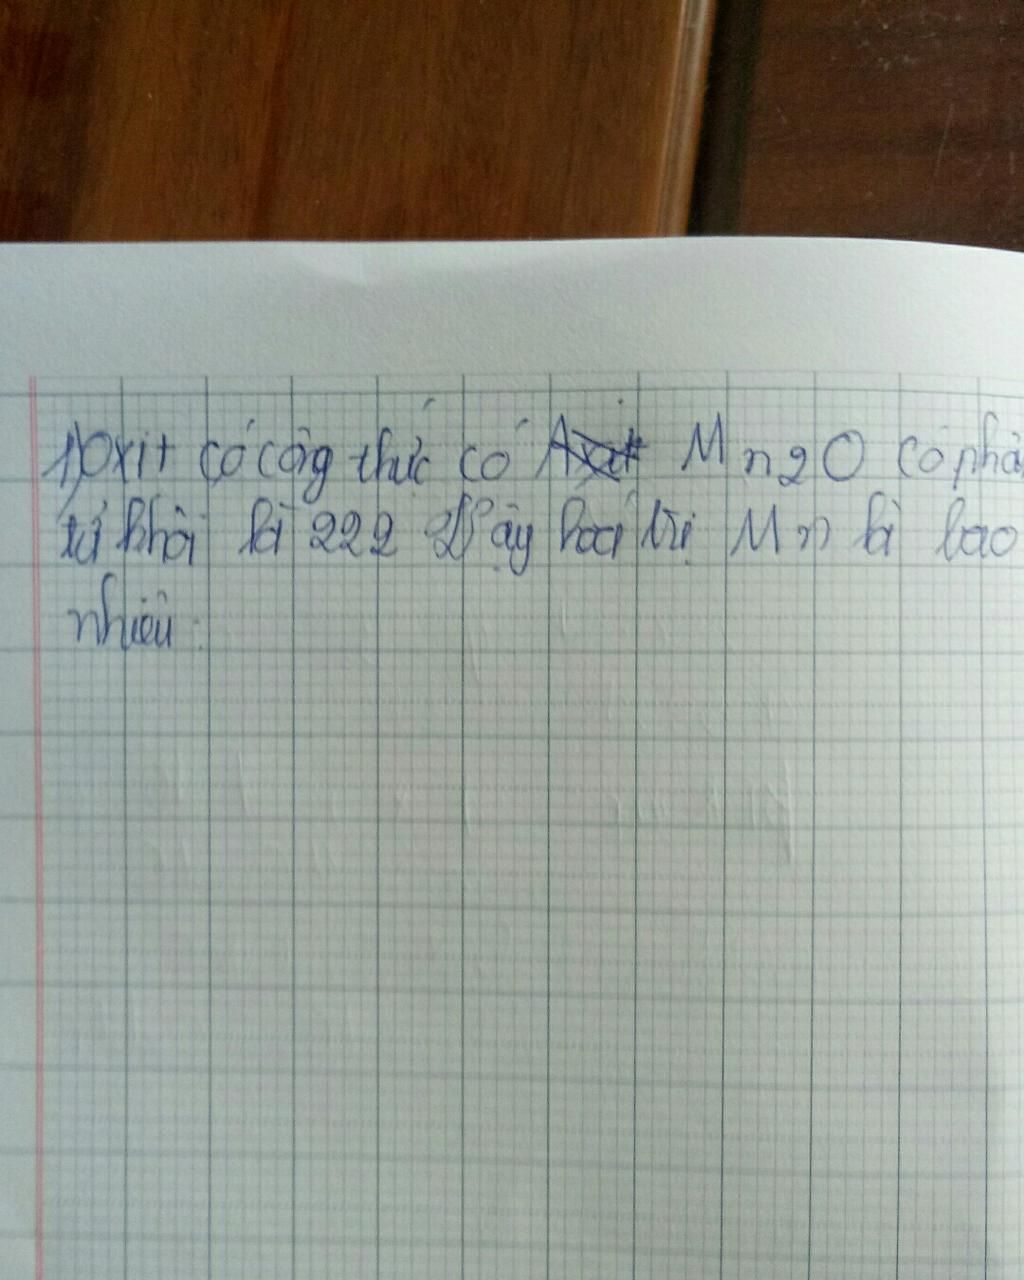 1) Oxit có công thức có Mn2O có phâ
tử khối là 222 Vậy hoá trị Mn là bao
nhiêu: